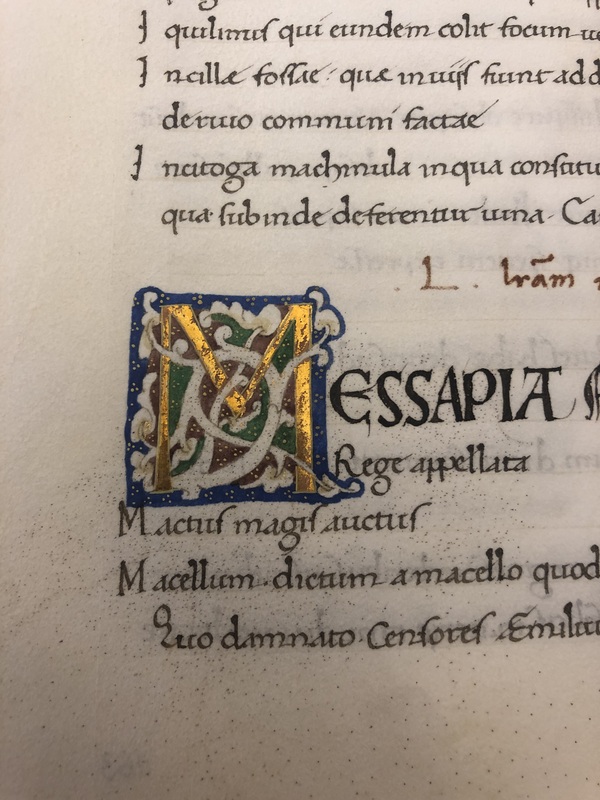 Inquilinus qui eundem colit focum
Incillæ fossæ: quæ in uijs fiunt
deriuo communi factae
Incitoga machinula in qua
qua subinde deferentur uina. Ca
. L . lrām
MESSAPIA
Rege appellata
Mactus magis auctus
Macellum. dictum a macello quod
Quo damnato Censores Æmiliu